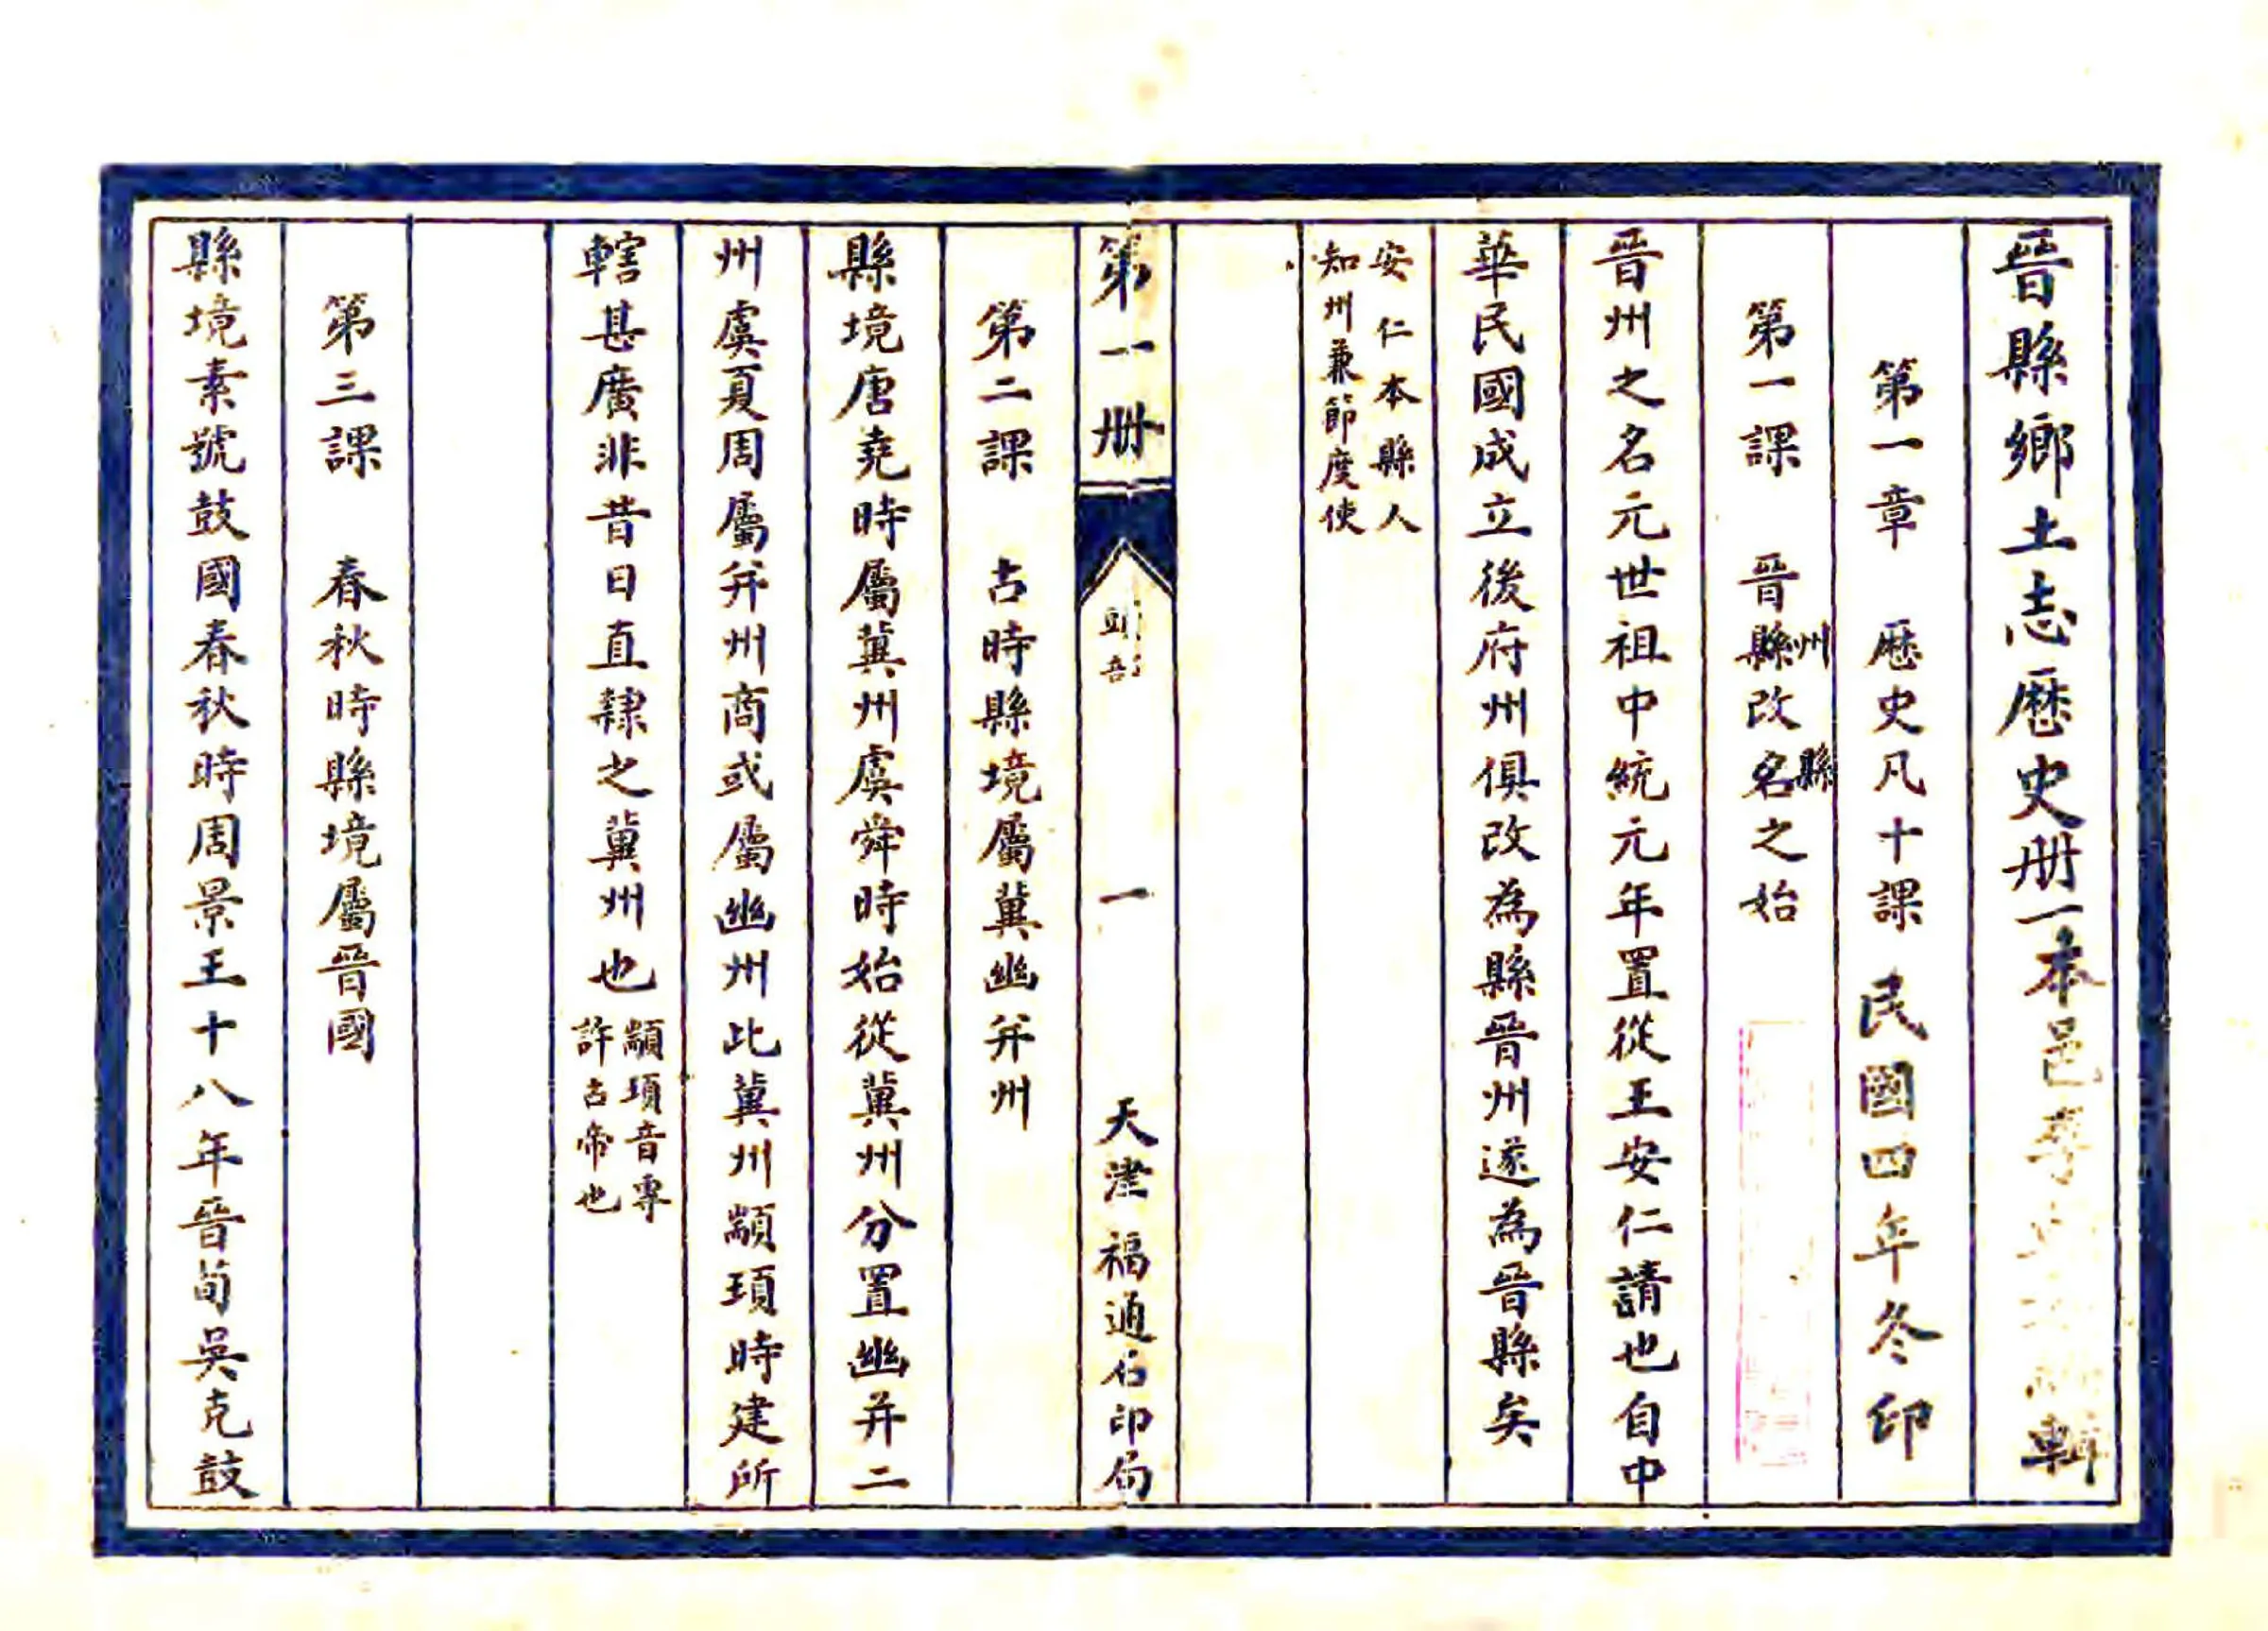 晉縣鄉土志歷史册一本邑李
輯
第一章　歷史凡十課　民國四年冬印
第一課　晉縣州改名縣之始
晉州之名元世祖中統元年置從王安仁請也自中
華民國成立後府州俱改為縣晉州遂為晉縣矣
安仁本縣人
知州兼節度使
第一册
一
天津福通石印局
第二課　古時縣境屬冀幽并州
縣境唐堯時屬冀州虞舜時始從冀州分置幽并二
州虞夏周屬并州商或屬幽州比冀州顓頊時建所
轄甚廣非昔日直隸之冀州也
顓項音專
許古帝也
第三課　春秋時縣境屬晉國
縣境素號鼓國春秋時周景王十八年晉荀吳克鼓